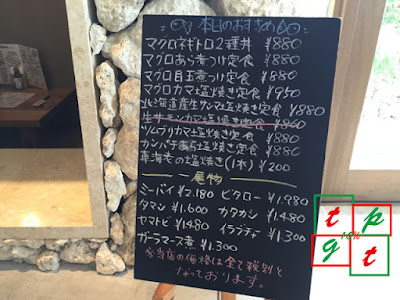 本日のおすすめ
マグロネギトロ2種丼 ¥880
マグロあら煮つけ定食 ¥880
マグロ目玉煮つけ定食 ¥880
マグロカマ塩焼き定食 ¥950
北海道産生サンマ塩焼き定食 ¥880
生サーモンカマ塩焼き定食 ¥860
ツムブリカマ塩焼き定食 ¥880
カンパチあら塩焼き定食 ¥880
車海老の塩焼き(1本) ¥200
一尾物
ミーバイ ¥2.180 ビタロー ¥1.980
タマン ¥1.600 カタカシ ¥1.480
ヤマトビ ¥1480 イラブチャー ¥1.300
ガーラマース煮 ¥1.300
※当店の価格は全て税別と
なっております。
t p
g t